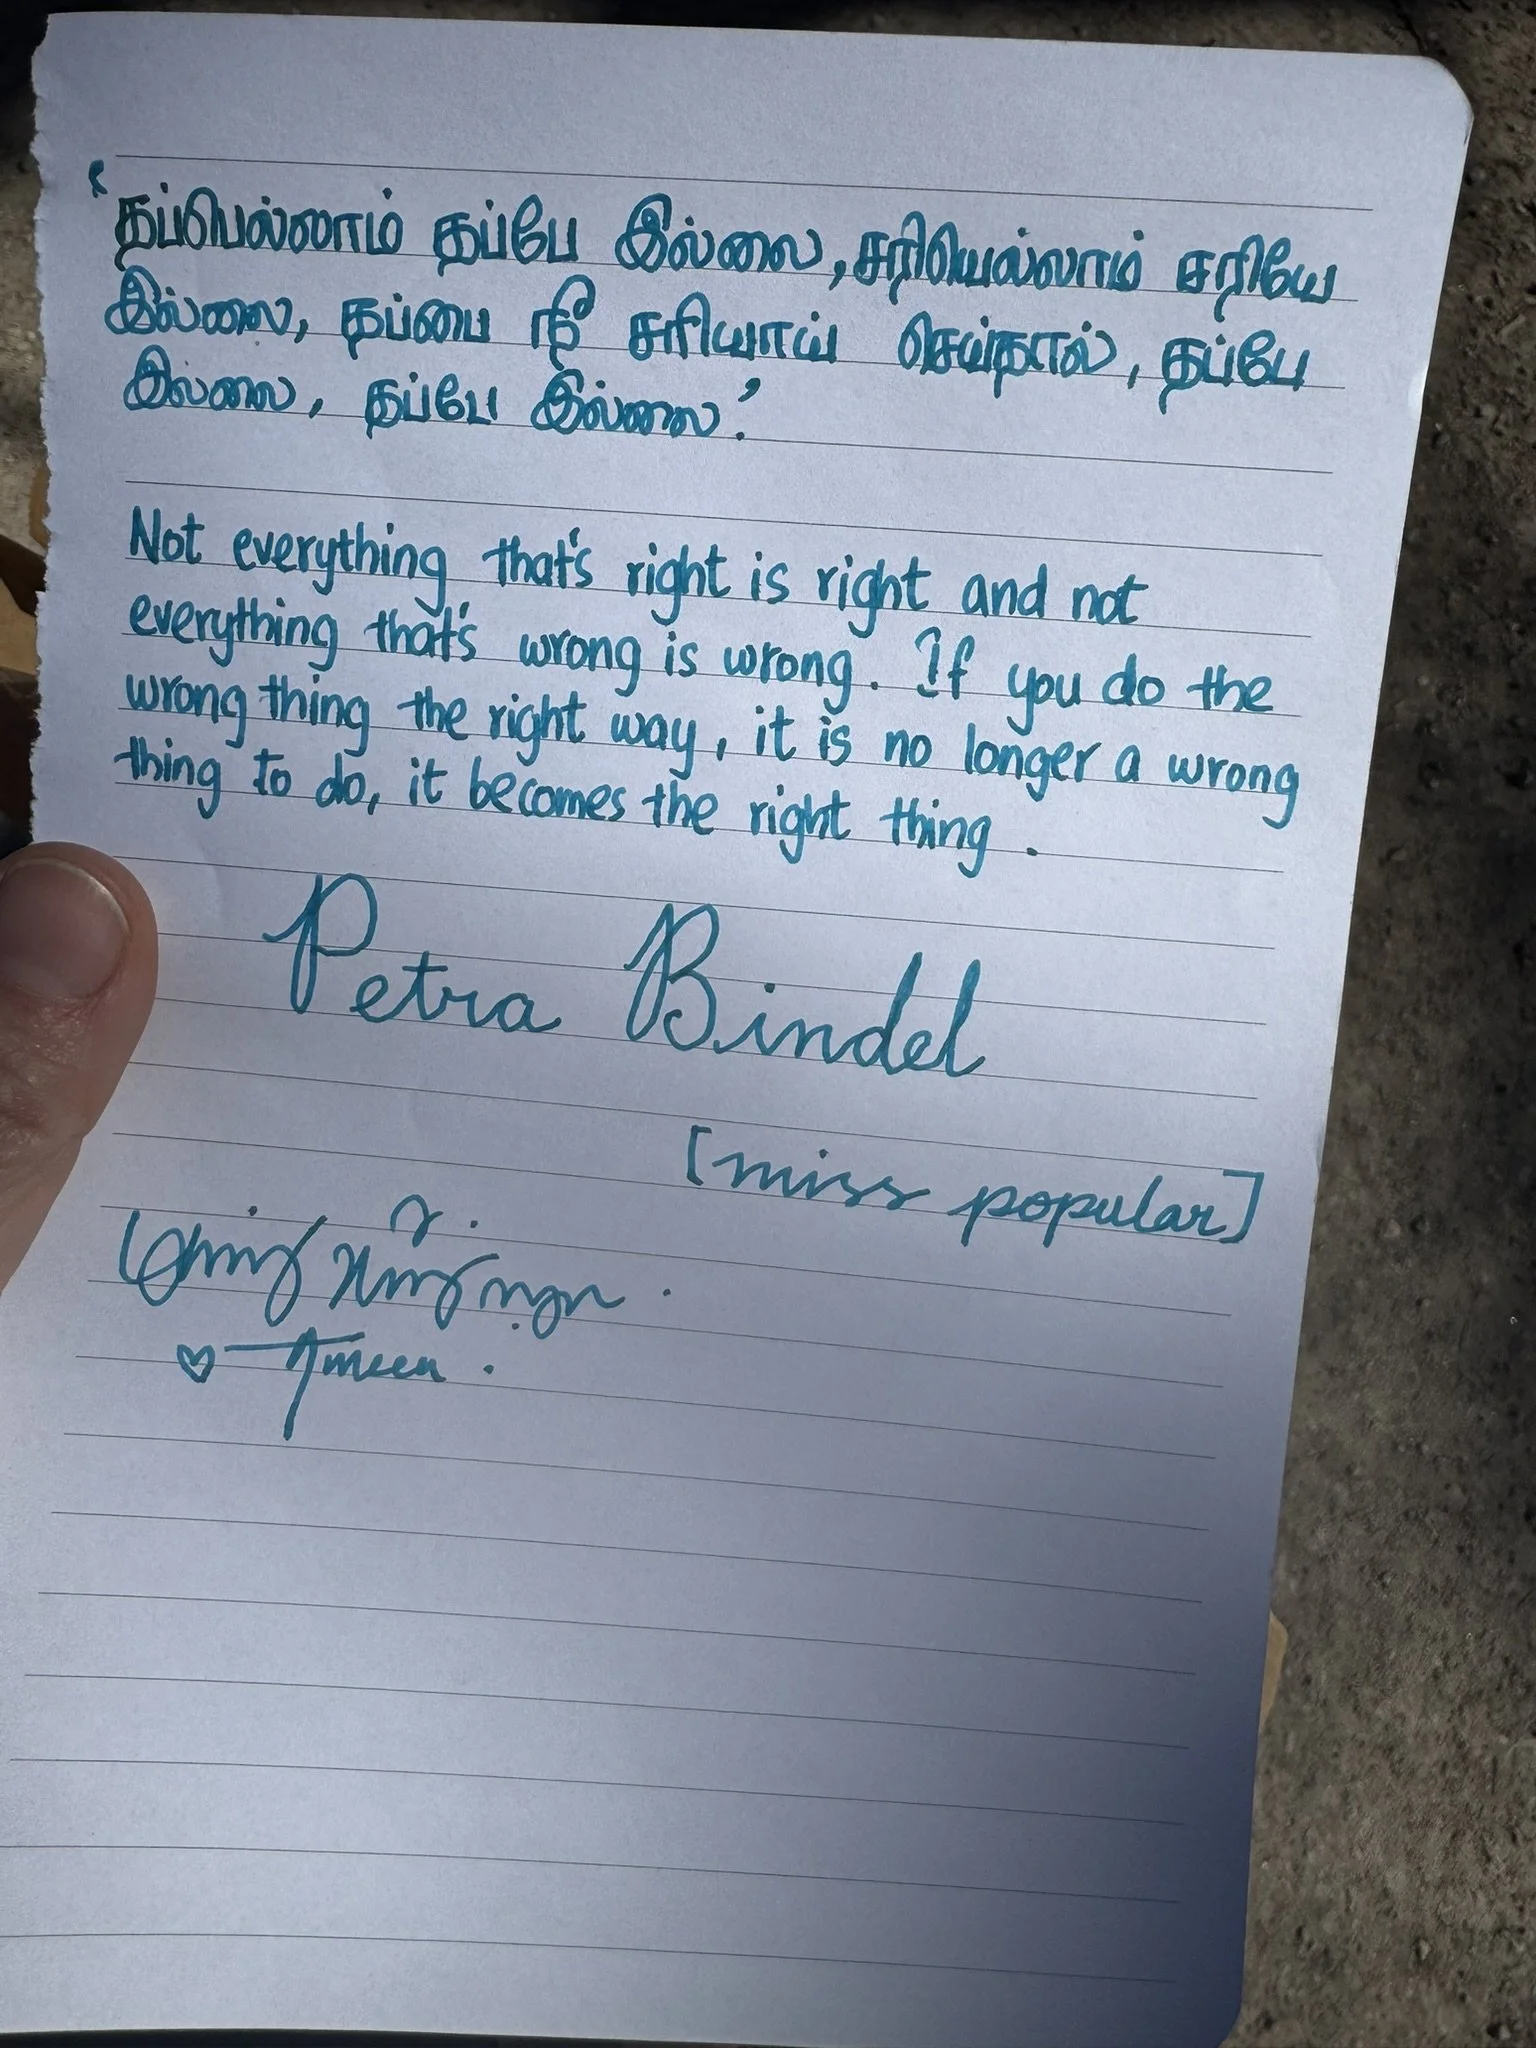 ‘தப்பெல்லாம் தப்பே இல்லை, சரியெல்லாம் சரியே
இல்லை, தப்பை நீ சரியாய் செய்தால், தப்பே
இல்லை, தப்பே இல்லை.’
Not everything that's right is right and not
everything that's wrong is wrong. If you do the
wrong thing the right way, it is no longer a wrong
thing to do, it becomes the right thing.
Petra Bindel
[miss popular]